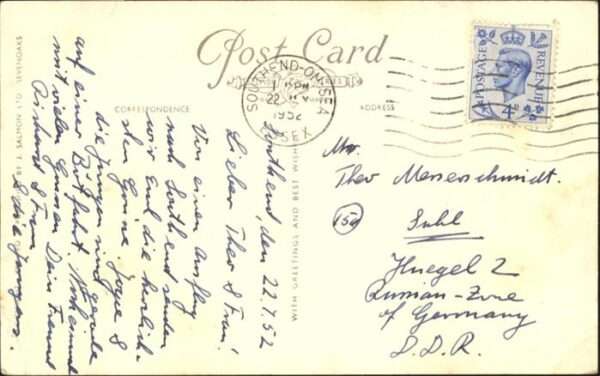 Post Card
CORRESPONDENCE
ADDRESS
SOUTHEND-ON-SEA
ESSEX
1952
POSTAGE REVENUE
4D
BY J. SALMON LTD SEVENOAKS
WITH GREETINGS AND BEST WISHES
Southend, den 22.7.52
Lieber Theo & Frau!
Von einem Ausflug
nach Southend senden
wir Euch die herzlich-
sten Grüsse. Joyce &
die Jungen sind gerade
auf einer Bootfahrt
mit vielen Grüssen Dein Freund
Richard & Frau
& die Jungens.
Mr.
Theo Messerschmidt.
150
Suhl
Huegel 2
Russian-Zone
of Germany
D.D.R.